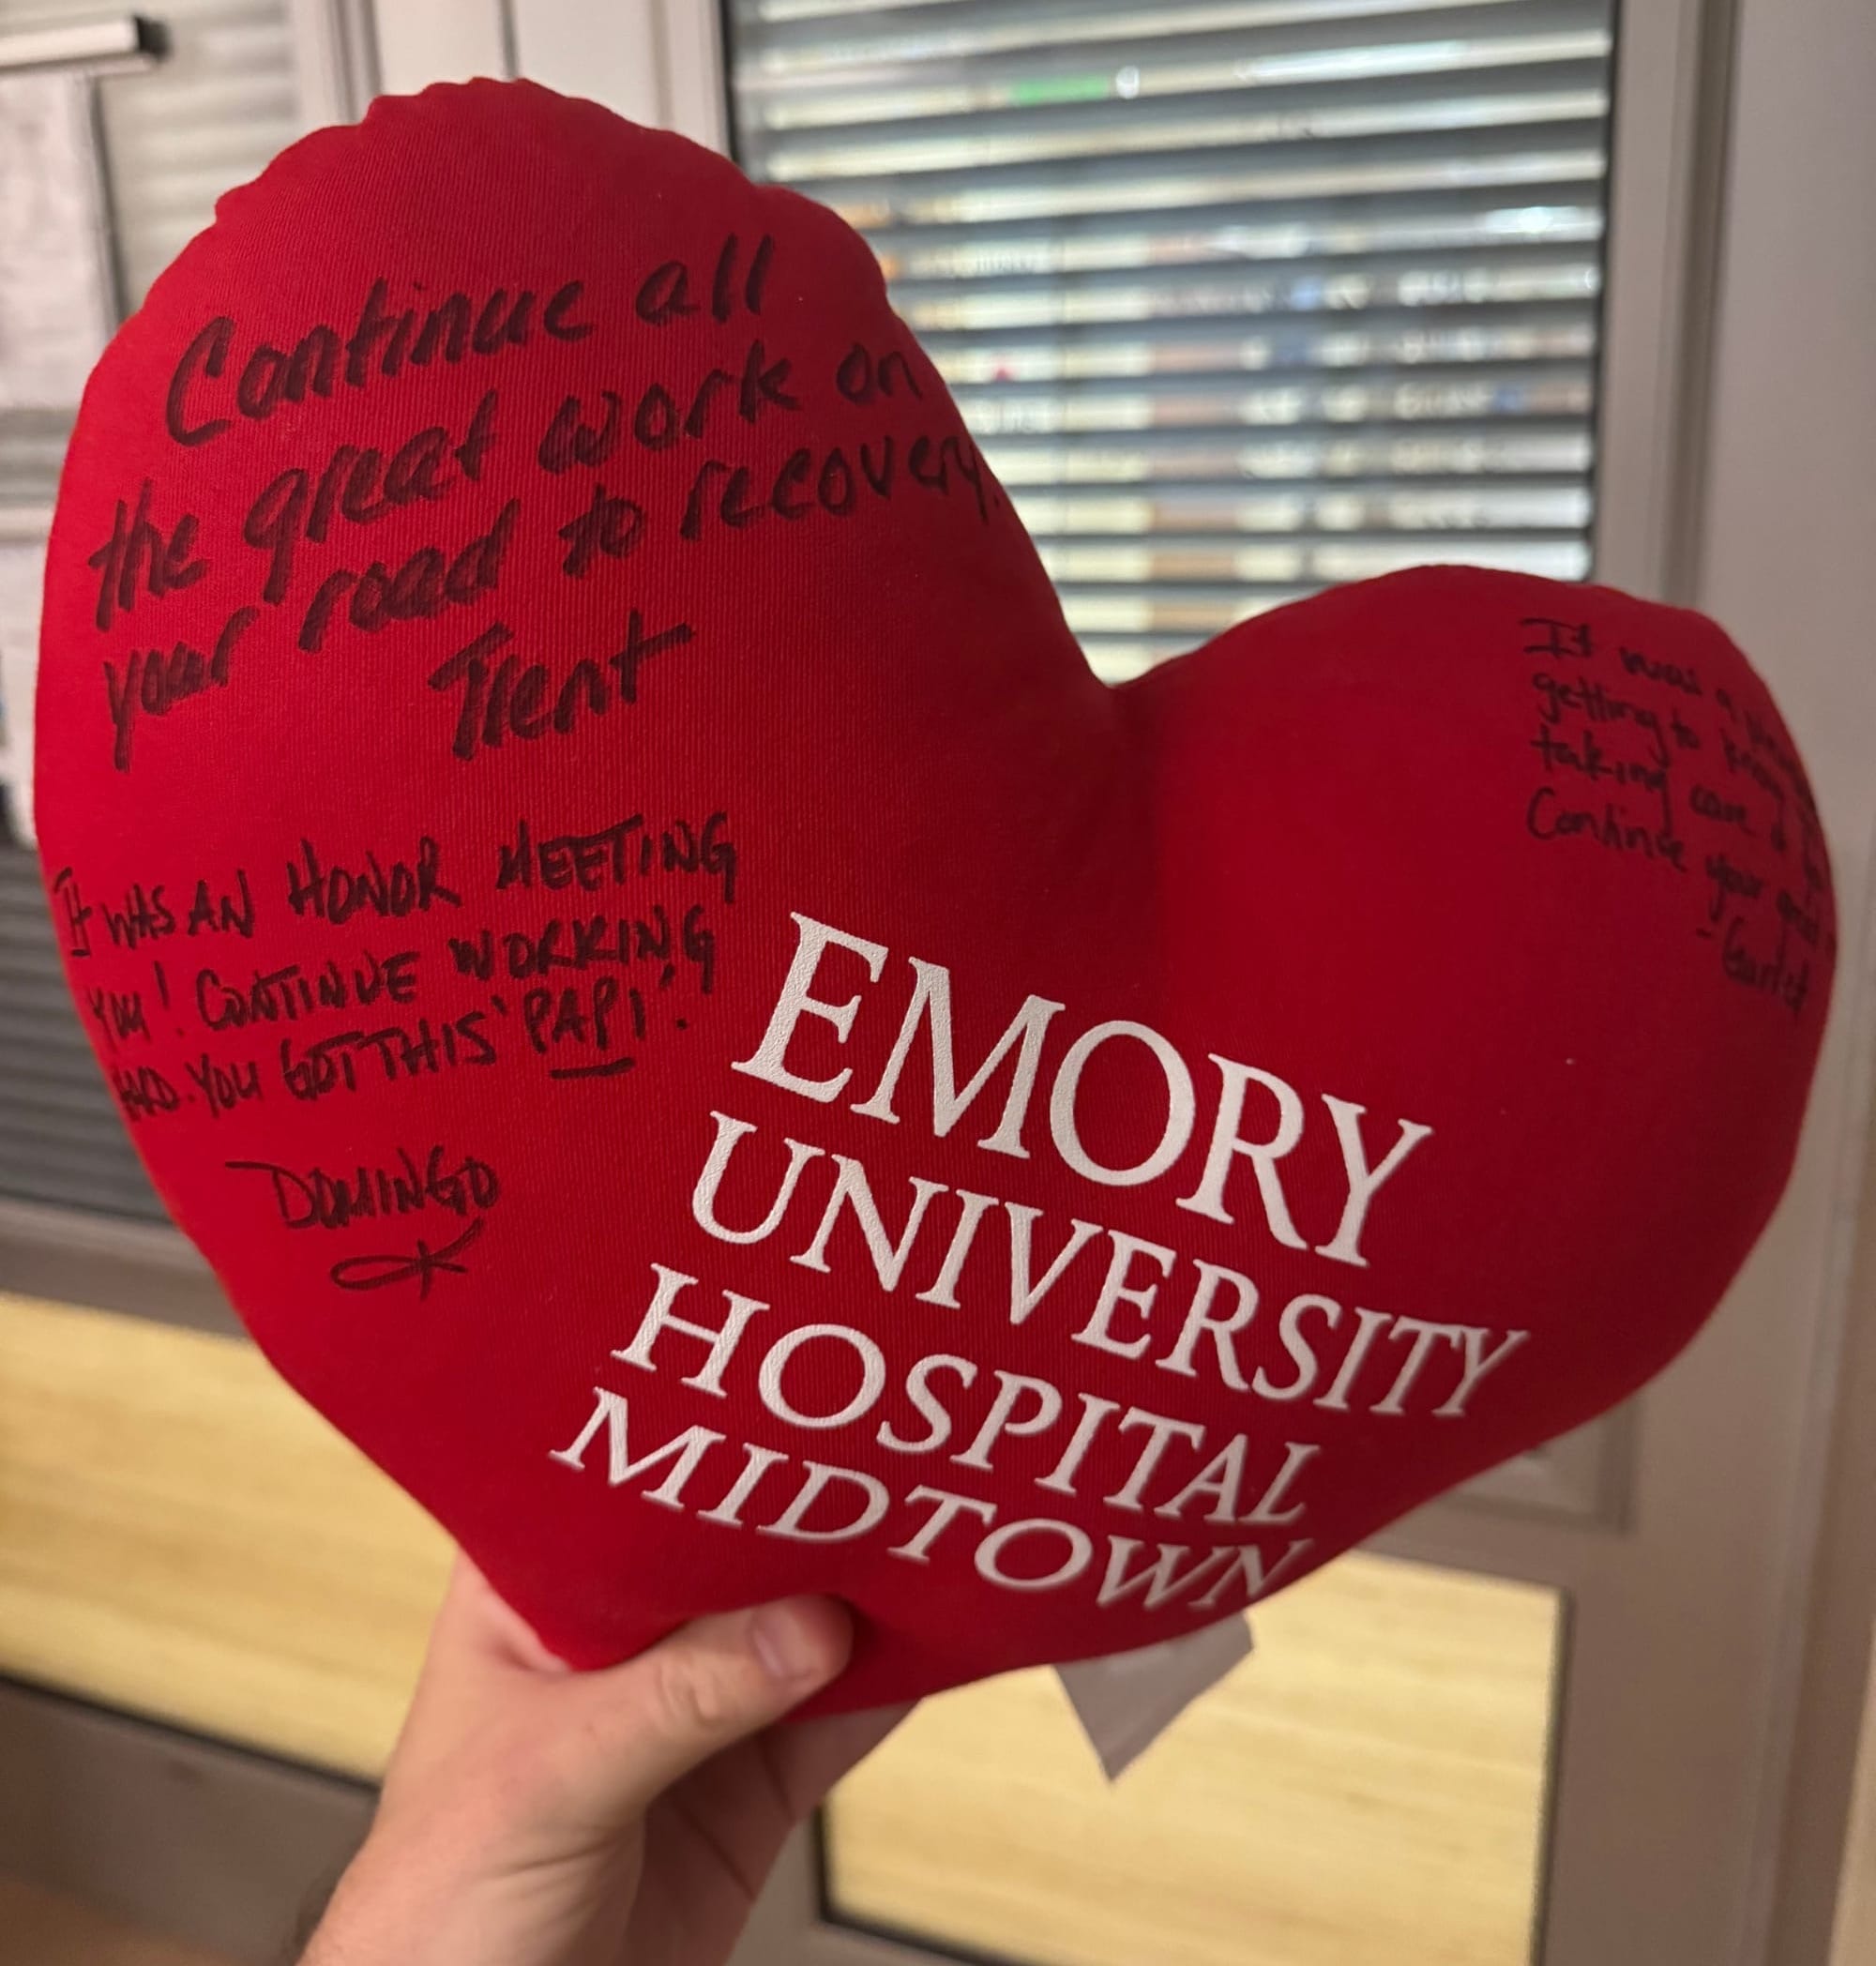 Continue all
the great work on
your road to recovery.
Trent
It WAS AN HONOR MEETING
YOU! CONTINUE WORKING
HARD. YOU GOT THIS 'PAPI'.
DOMINGO
It was a
getting to know
taking care of
Continue your good
EMORY
UNIVERSITY
HOSPITAL
MIDTOWN